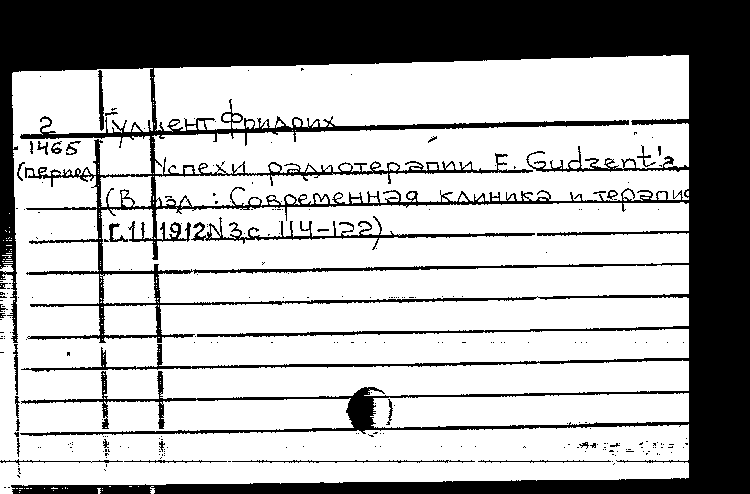 2 Гудцент, Фридрих
1465
(период) Успехи радиотерапии. F. Gudzent'a.
(В изд.: Современная клиника и терапия
Г.11 1912 N3, с. 114-122).